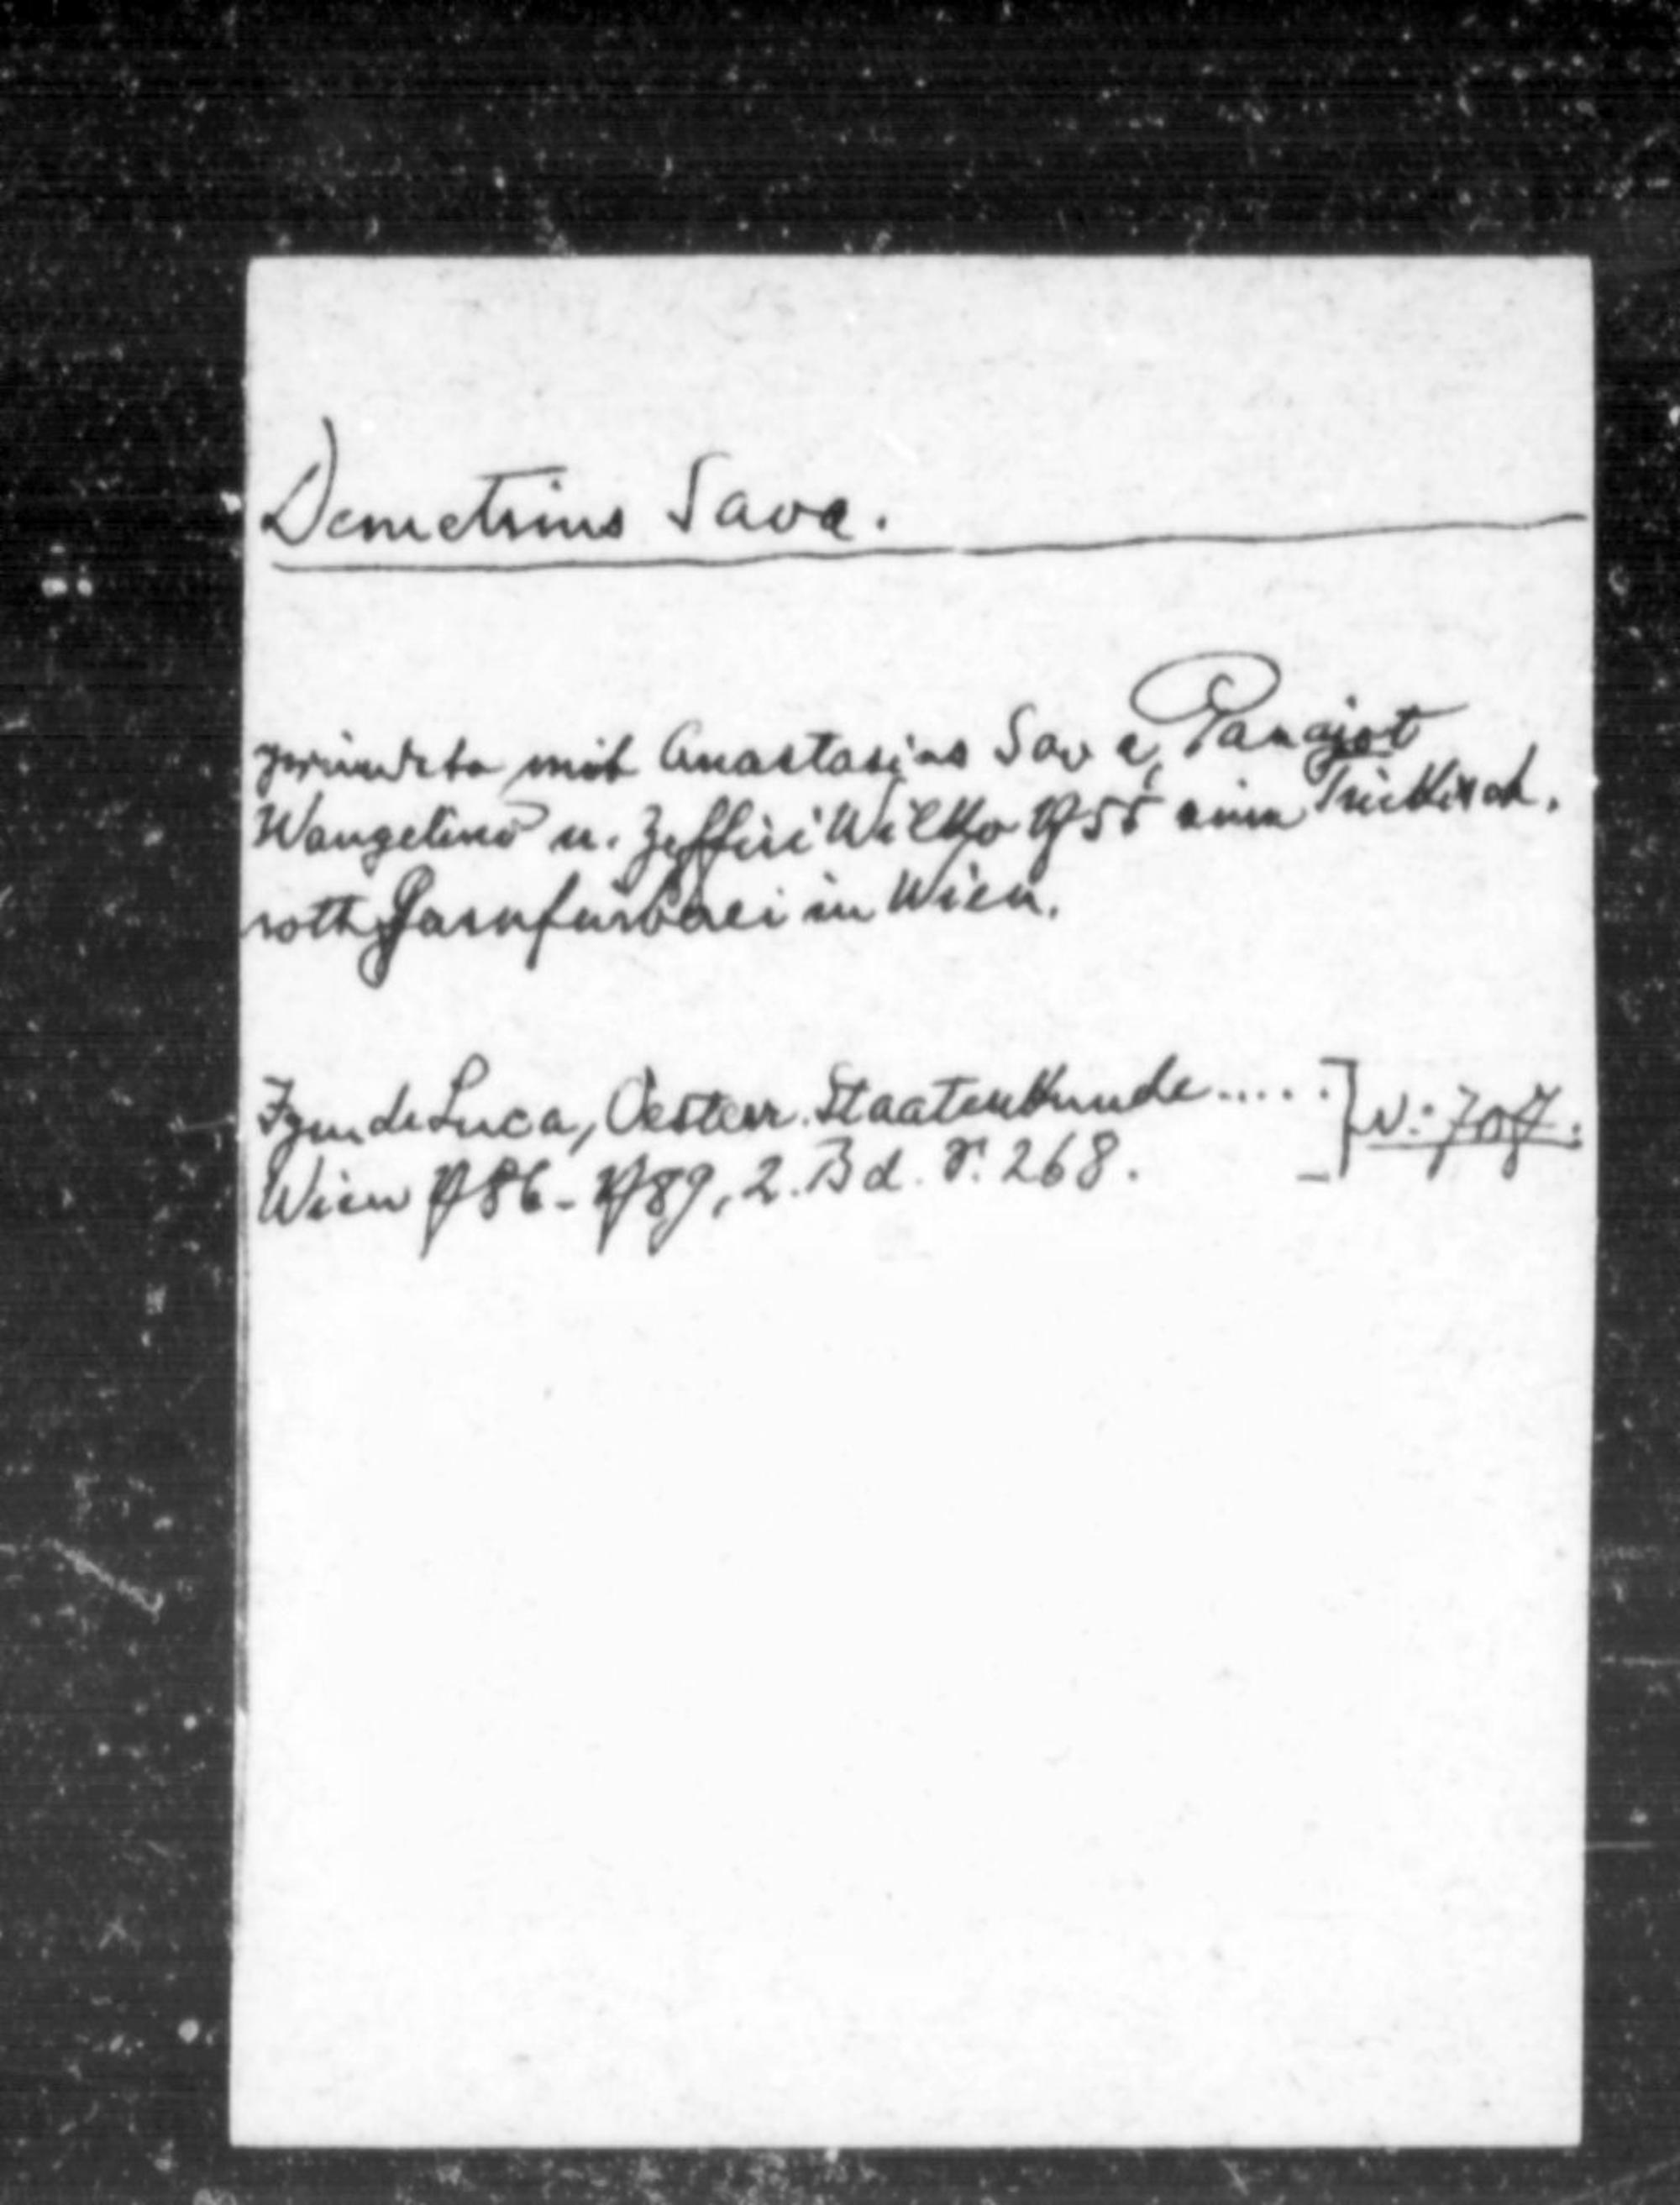 Demetrius Sava.
gründete mit Anastasius Sava, Panajot
Wangelino u. Zeffiri Wilko 1755 eine Türkisch-
roth Garnfärberei in Wien.
Ign. de Luca, Oesterr. Staatenkunde.....] N:
Wien 1786-1789, 2. Bd. S. 268.